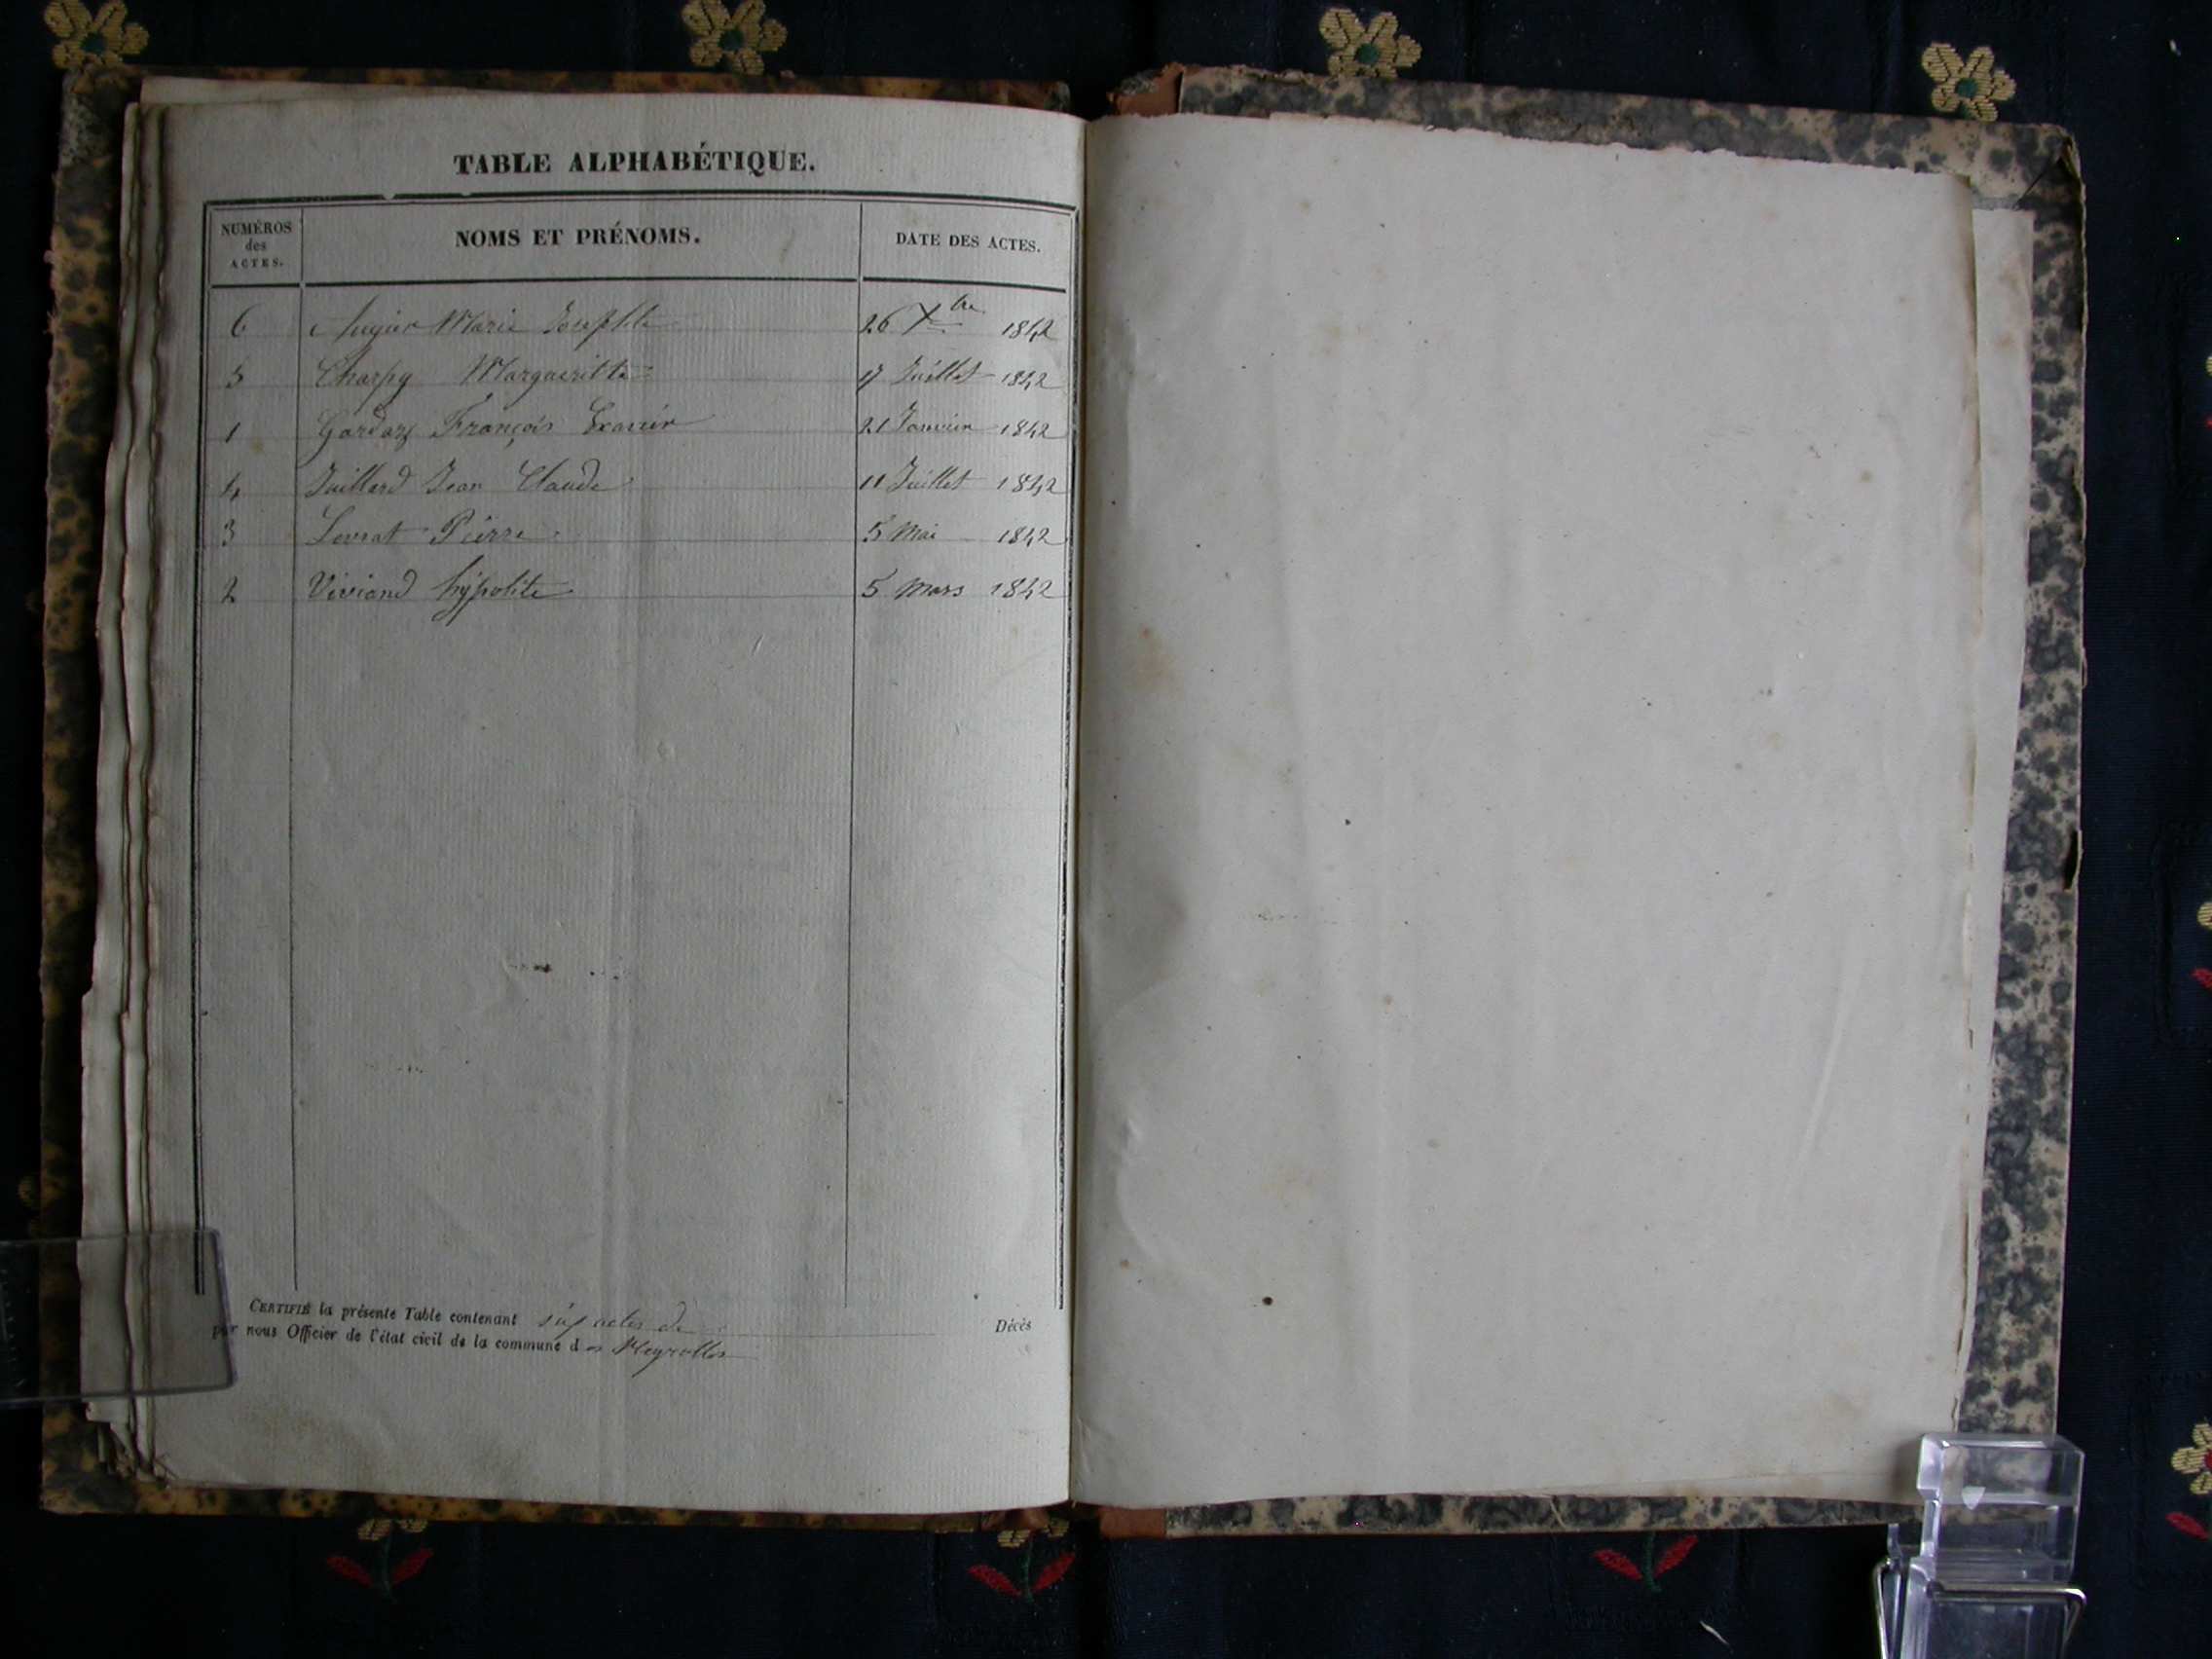 TABLE ALPHABÉTIQUE.
NUMÉROS des ACTES. NOMS ET PRÉNOMS. DATE DES ACTES.
6 Augier Marie Josephte 26 Xbre 1842
5 Charpy Margueritte 17 Juillet 1842
1 François Exavier 21 Janvier 1842
4 Juillard Jean Claude 11 Juillet 1842
3 Levrat Pierre 5 Mai 1842
2 Viviand hypolite 5 Mars 1842
CERTIFIÉ la présente Table contenant six actes de Décès
par nous Officier de l'état civil de la commune de Meyrolles